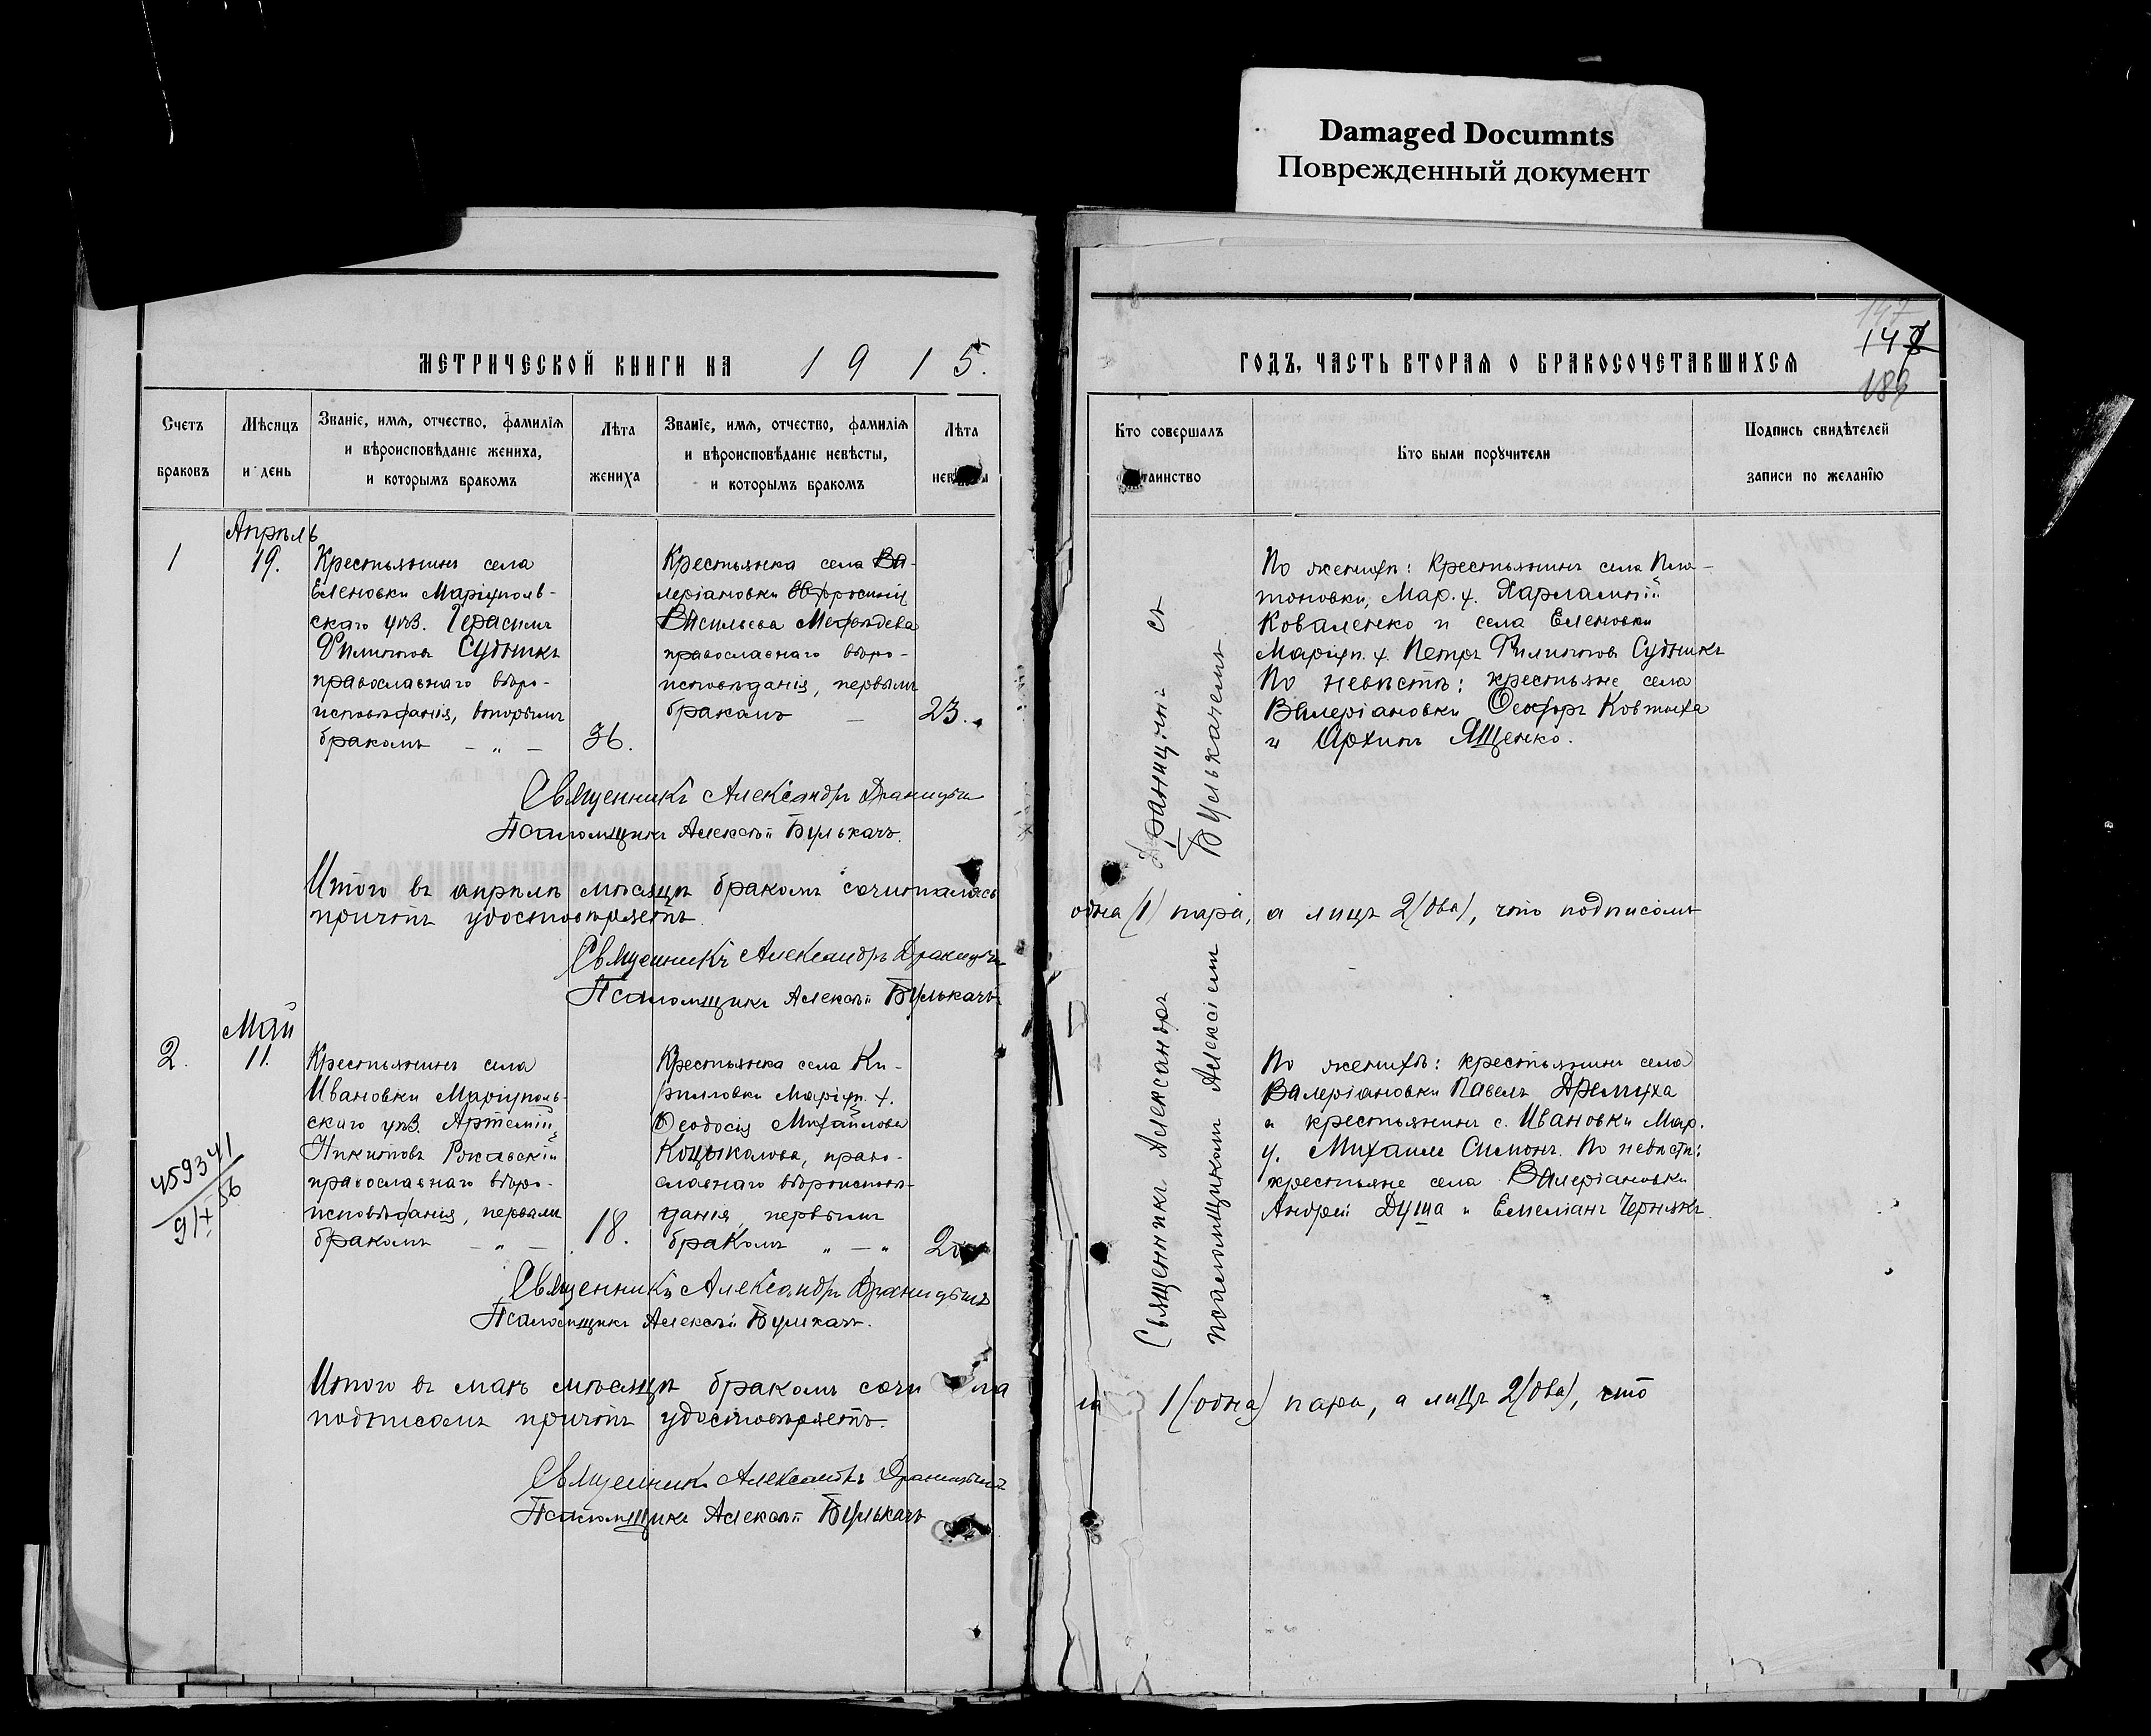 Damaged Documnts
Поврежденный документ
МЕТРИЧЕСКОЙ КНИГИ НА 1915.
Счетъ браковъ
Мѣсяцъ и день
Званіе, имя, отчество, фамилія
и вѣроисповѣданіе жениха,
и которымъ бракомъ
Лѣта жениха
Званіе, имя, отчество, фамилія
и вѣроисповѣданіе невѣсты,
и которымъ бракомъ
Лѣта
1
Апрѣль
19.
Крестьянинъ села
Еленовки Маріуполь-
скаго уѣз. Герасимъ
Филиповъ Судникъ
православнаго вѣро-
исповѣданія, вторымъ
бракомъ — „ —
36.
Крестьянка села Ва-
леріановки Евфросинія
Васильева Мефодева
православнаго вѣро-
исповѣданія, первымъ
бракомъ —
23.
Священникъ Александръ Драницынъ
Псаломщикъ Алексѣй Булькачъ.
Итого въ апрѣлѣ мѣсяцѣ бракомъ сочиталась
причтъ удостовѣряетъ.
Священникъ Александръ Драницынъ
Псаломщикъ Алексѣй Булькачъ
2.
Май
11.
Крестьянинъ села
Ивановки Маріуполь-
скаго уѣз. Артемій
Никитовъ
православнаго вѣро-
исповѣданія, первымъ
бракомъ — „ —
18.
Крестьянка села Ки-
риловки Маріуп. у.
Ѳеодосія Михайлова
Коцыкалова, право-
славнаго вѣроисповѣ-
данія, первымъ
бракомъ „ — „
459341
9 IX 56
Священникъ Александръ Драницынъ
Псаломщикъ Алексѣй Булькачъ.
Итого въ маѣ мѣсяцѣ бракомъ сочи
подписомъ причтъ удостовѣряетъ.
Священникъ Александръ Драницынъ
Псаломщикъ Алексѣй Булькачъ
147
189
ГОДЪ, ЧАСТЬ ВТОРАЯ О БРАКОСОЧЕТАВШИХСЯ
Кто совершалъ
таинство
Кто были поручители
Подпись свидѣтелей
записи по желанію
Священникъ Александръ Драницынъ съ
псаломщикомъ Алексіемъ Булькачемъ
По женихѣ: Крестьянинъ села Пла-
тоновки, Мар. у. Харлампій
Коваленко и села Еленовки
Маріуп. у. Петръ Филиповъ Судникъ
По невѣстѣ: крестьяне села
Валеріановки Ѳеодоръ Ковтюха
и Архипъ Ященко.
одна (1) пара, а лицъ 2 (два), что подписомъ
По женихѣ: крестьянинъ села
Валеріановки Павелъ Дремуха
и крестьянинъ с. Ивановки Мар.
у. Михаилъ Симонъ. По невѣстѣ:
крестьяне села Валеріановки
Андрей Душа и Емеліанъ Чернякъ
1 (одна) пара, а лицъ 2 (два), что